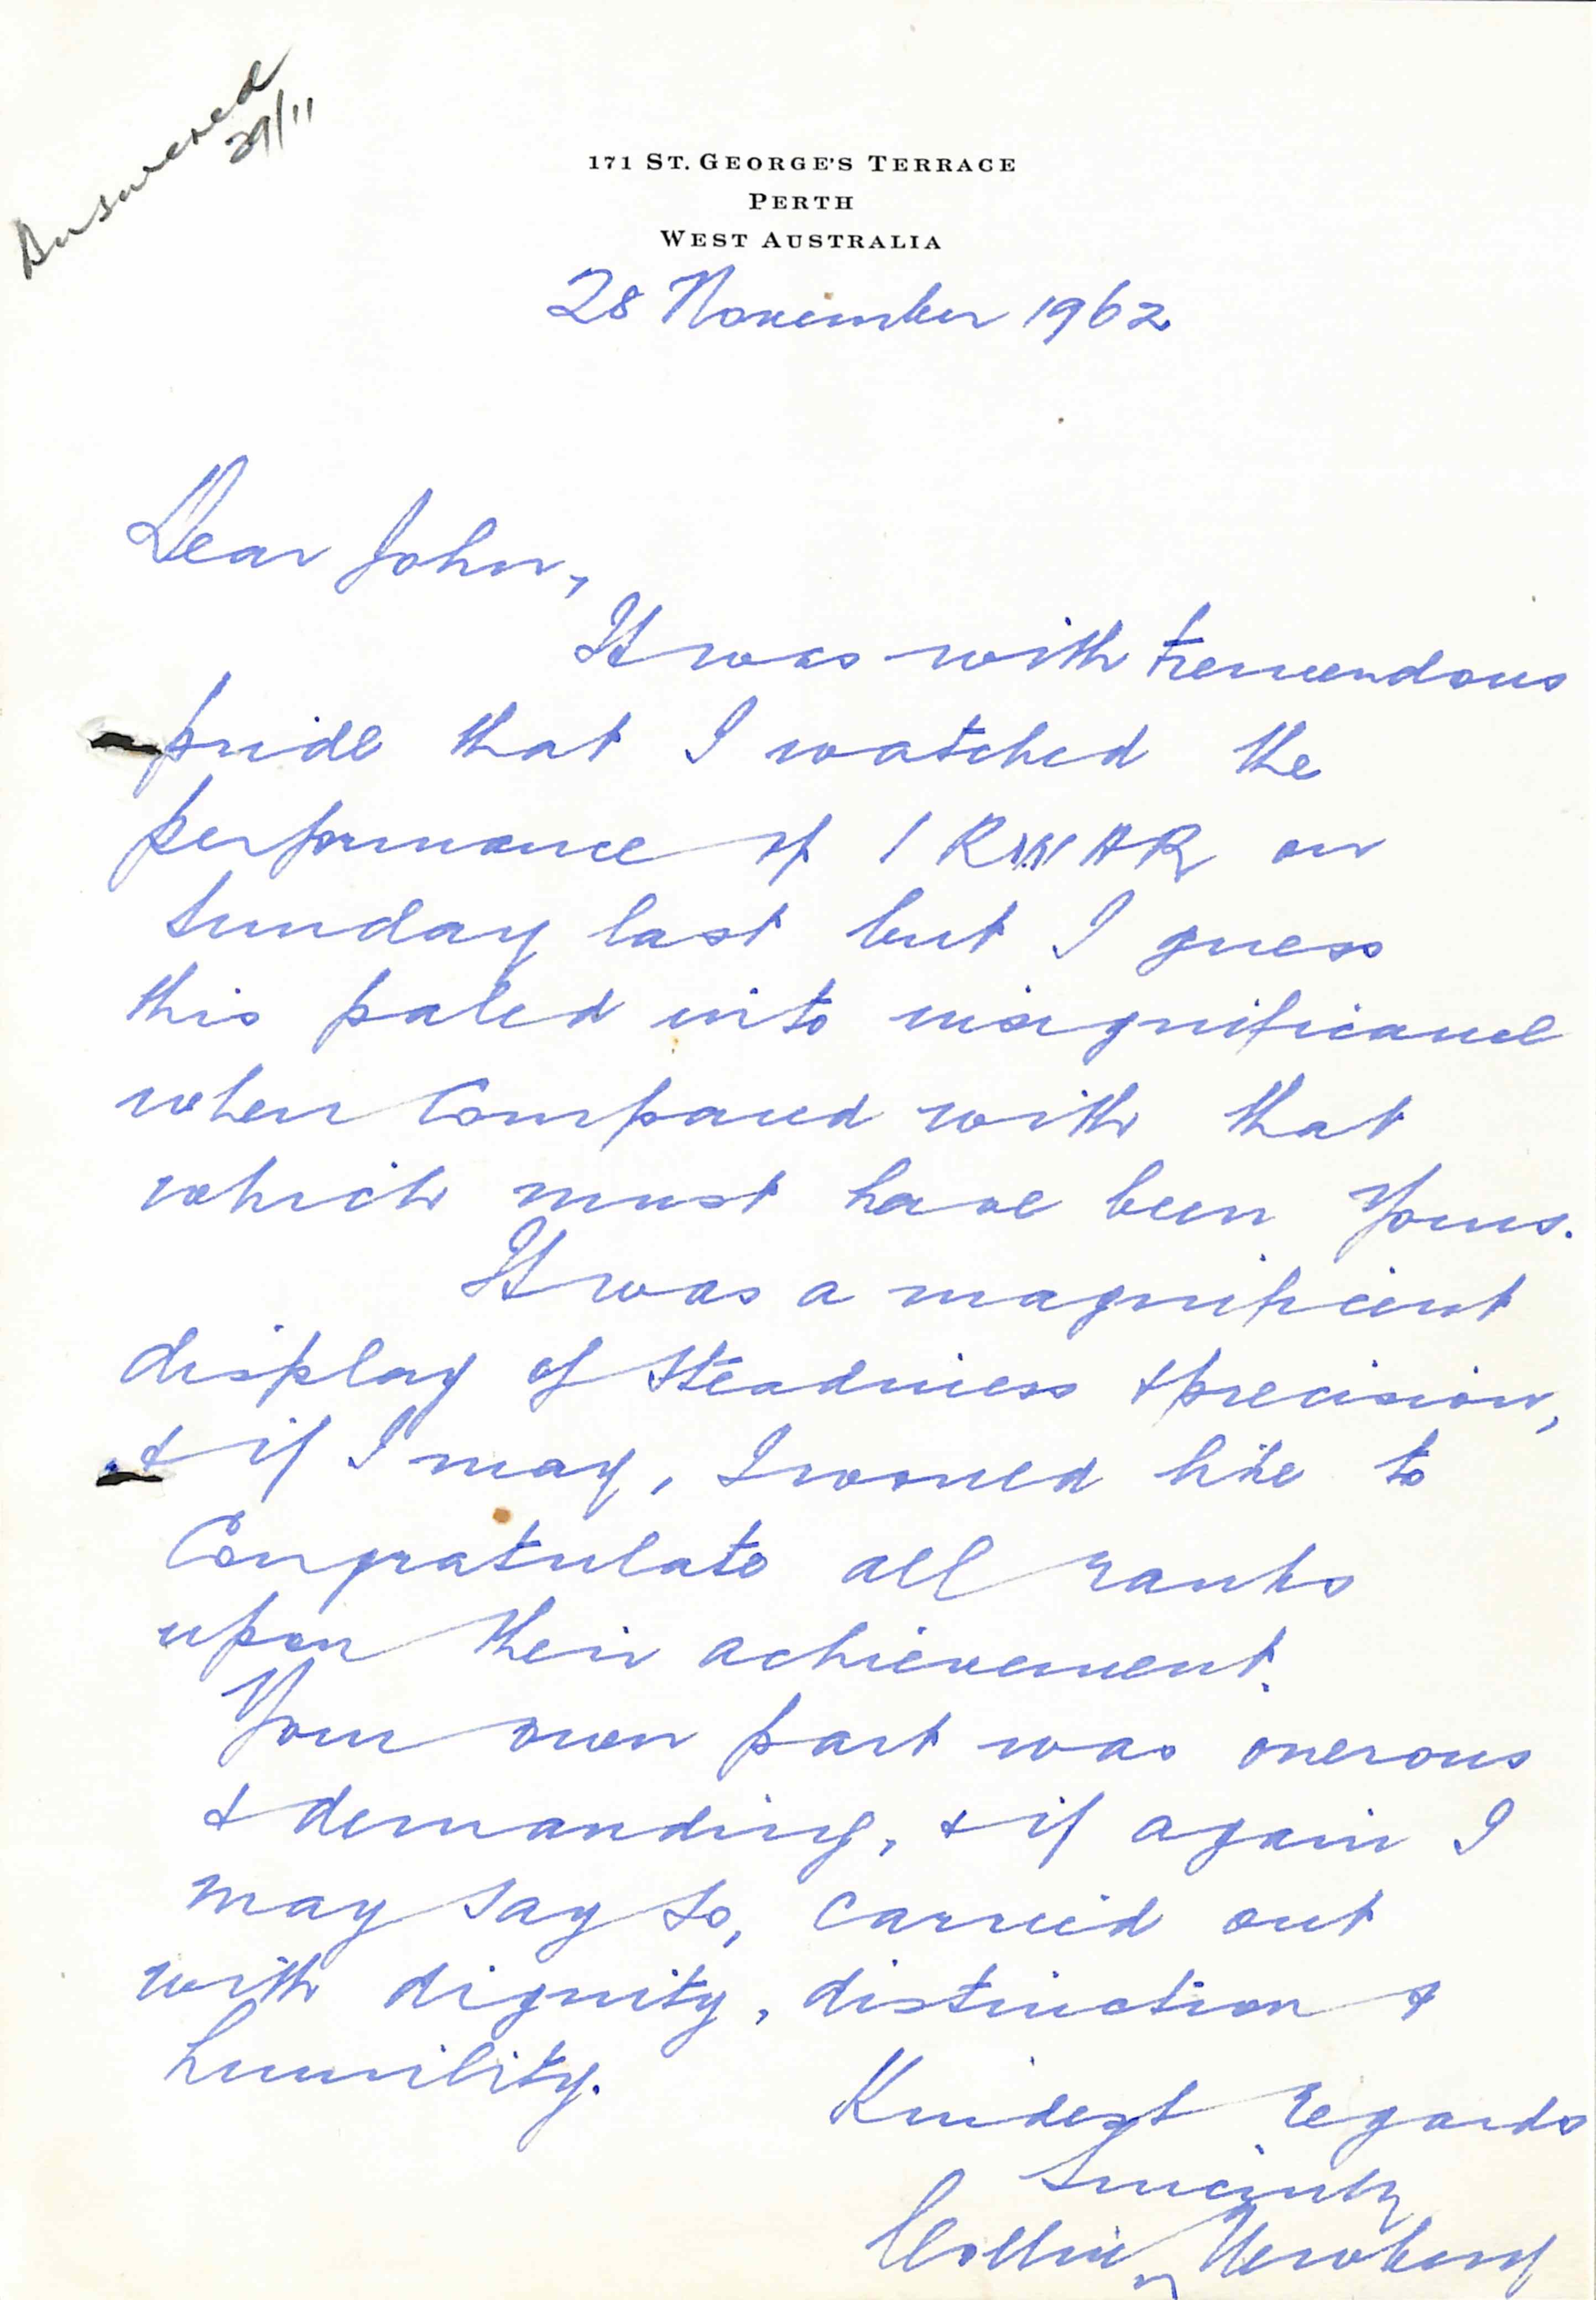 Answered
29/11
171 ST. GEORGE'S TERRACE
PERTH
WEST AUSTRALIA
28 November 1962
Dear John,
It was with tremendous
pride that I watched the
performance of 1 RWAR on
Sunday last but I guess
this paled into insignificance
when compared with that
which must have been yours.
It was a magnificent
display of steadiness & precision,
& if I may, I would like to
Congratulate all ranks
upon their achievement.
Your own part was onerous
& demanding, & if again I
may say so, carried out
with dignity, distinction &
humility.
Kindest regards
Sincerely